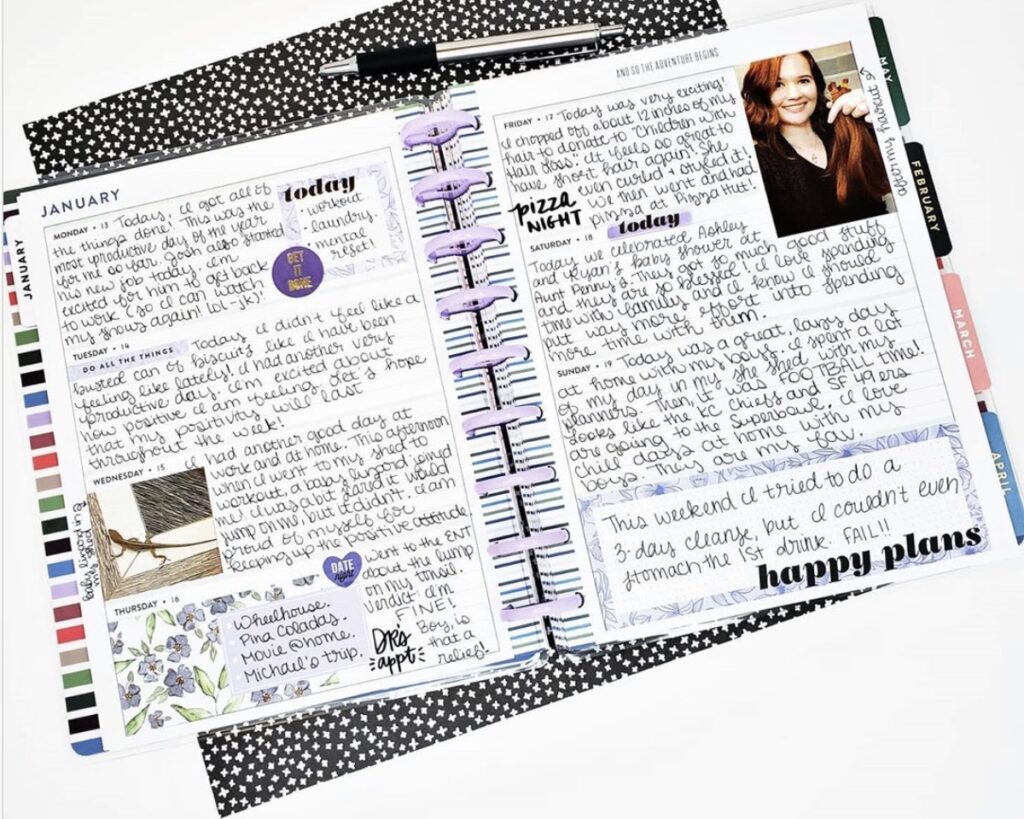 JANUARY
MONDAY • 13 Today, I got all of
the things done! This was the
most productive day of the year
for me so far. Josh also started
his new job today. I'm
excited for him to get back
to work (so I can watch
my shows again! lol-jk)!
today
• workout
• laundry
• mental
reset!
GET
IT
DONE
TUESDAY • 14 Today, I didn't feel like a
DO ALL THE THINGS
busted can of biscuits like I have been
feeling like lately! I had another very
productive day. I'm excited about
how positive I am feeling, let's hope
that my positivity will last
throughout the week!
WEDNESDAY • 15
I had another good day at
work and at home. This afternoon
when I went to my shed to
workout, a baby lizard joined
me! I was a bit scared it would
jump on me, but it didn't. I am
proud of myself for
keeping up the positive attitude.
baby lizard in
my shed
THURSDAY • 16
DATE
night
Wheelhouse.
Pina Coladas.
Movie @ home.
Michael's trip.
Went to the ENT
about the lump
on my tonsil.
Verdict: I'm
FINE!
Boy, is
that a
relief.
DRS
appt
AND SO THE ADVENTURE BEGINS
FRIDAY • 17 Today was very exciting!
I chopped off about 12 inches of my
hair to donate to "Children with
Hair Loss". It feels so great to
have short hair again! She
even curled + styled it!
We then went and had
pizza at Pizza Hut!
pizza
NIGHT
after my haircut
today
SATURDAY • 18
Today we celebrated Ashley
and Ryan's baby shower at
Aunt Penny's. They got so much good stuff
and they are so blessed! I love spending
time with family and I know I should
put way more effort into spending
more time with them.
SUNDAY • 19 Today was a great, lazy day
at home with my boys. I spent a lot
of my day in my she shed with my
planners. Then, it was FOOTBALL time!
Looks like the KC Chiefs and SF 49ers
are going to the Superbowl. I love
chill days at home with my
boys. They are my fav.
This weekend I tried to do a
3-day cleanse, but I couldn't even
stomach the 1st drink. FAIL!!
happy plans
JANUARY
MAY
FEBRUARY
MARCH
APRIL